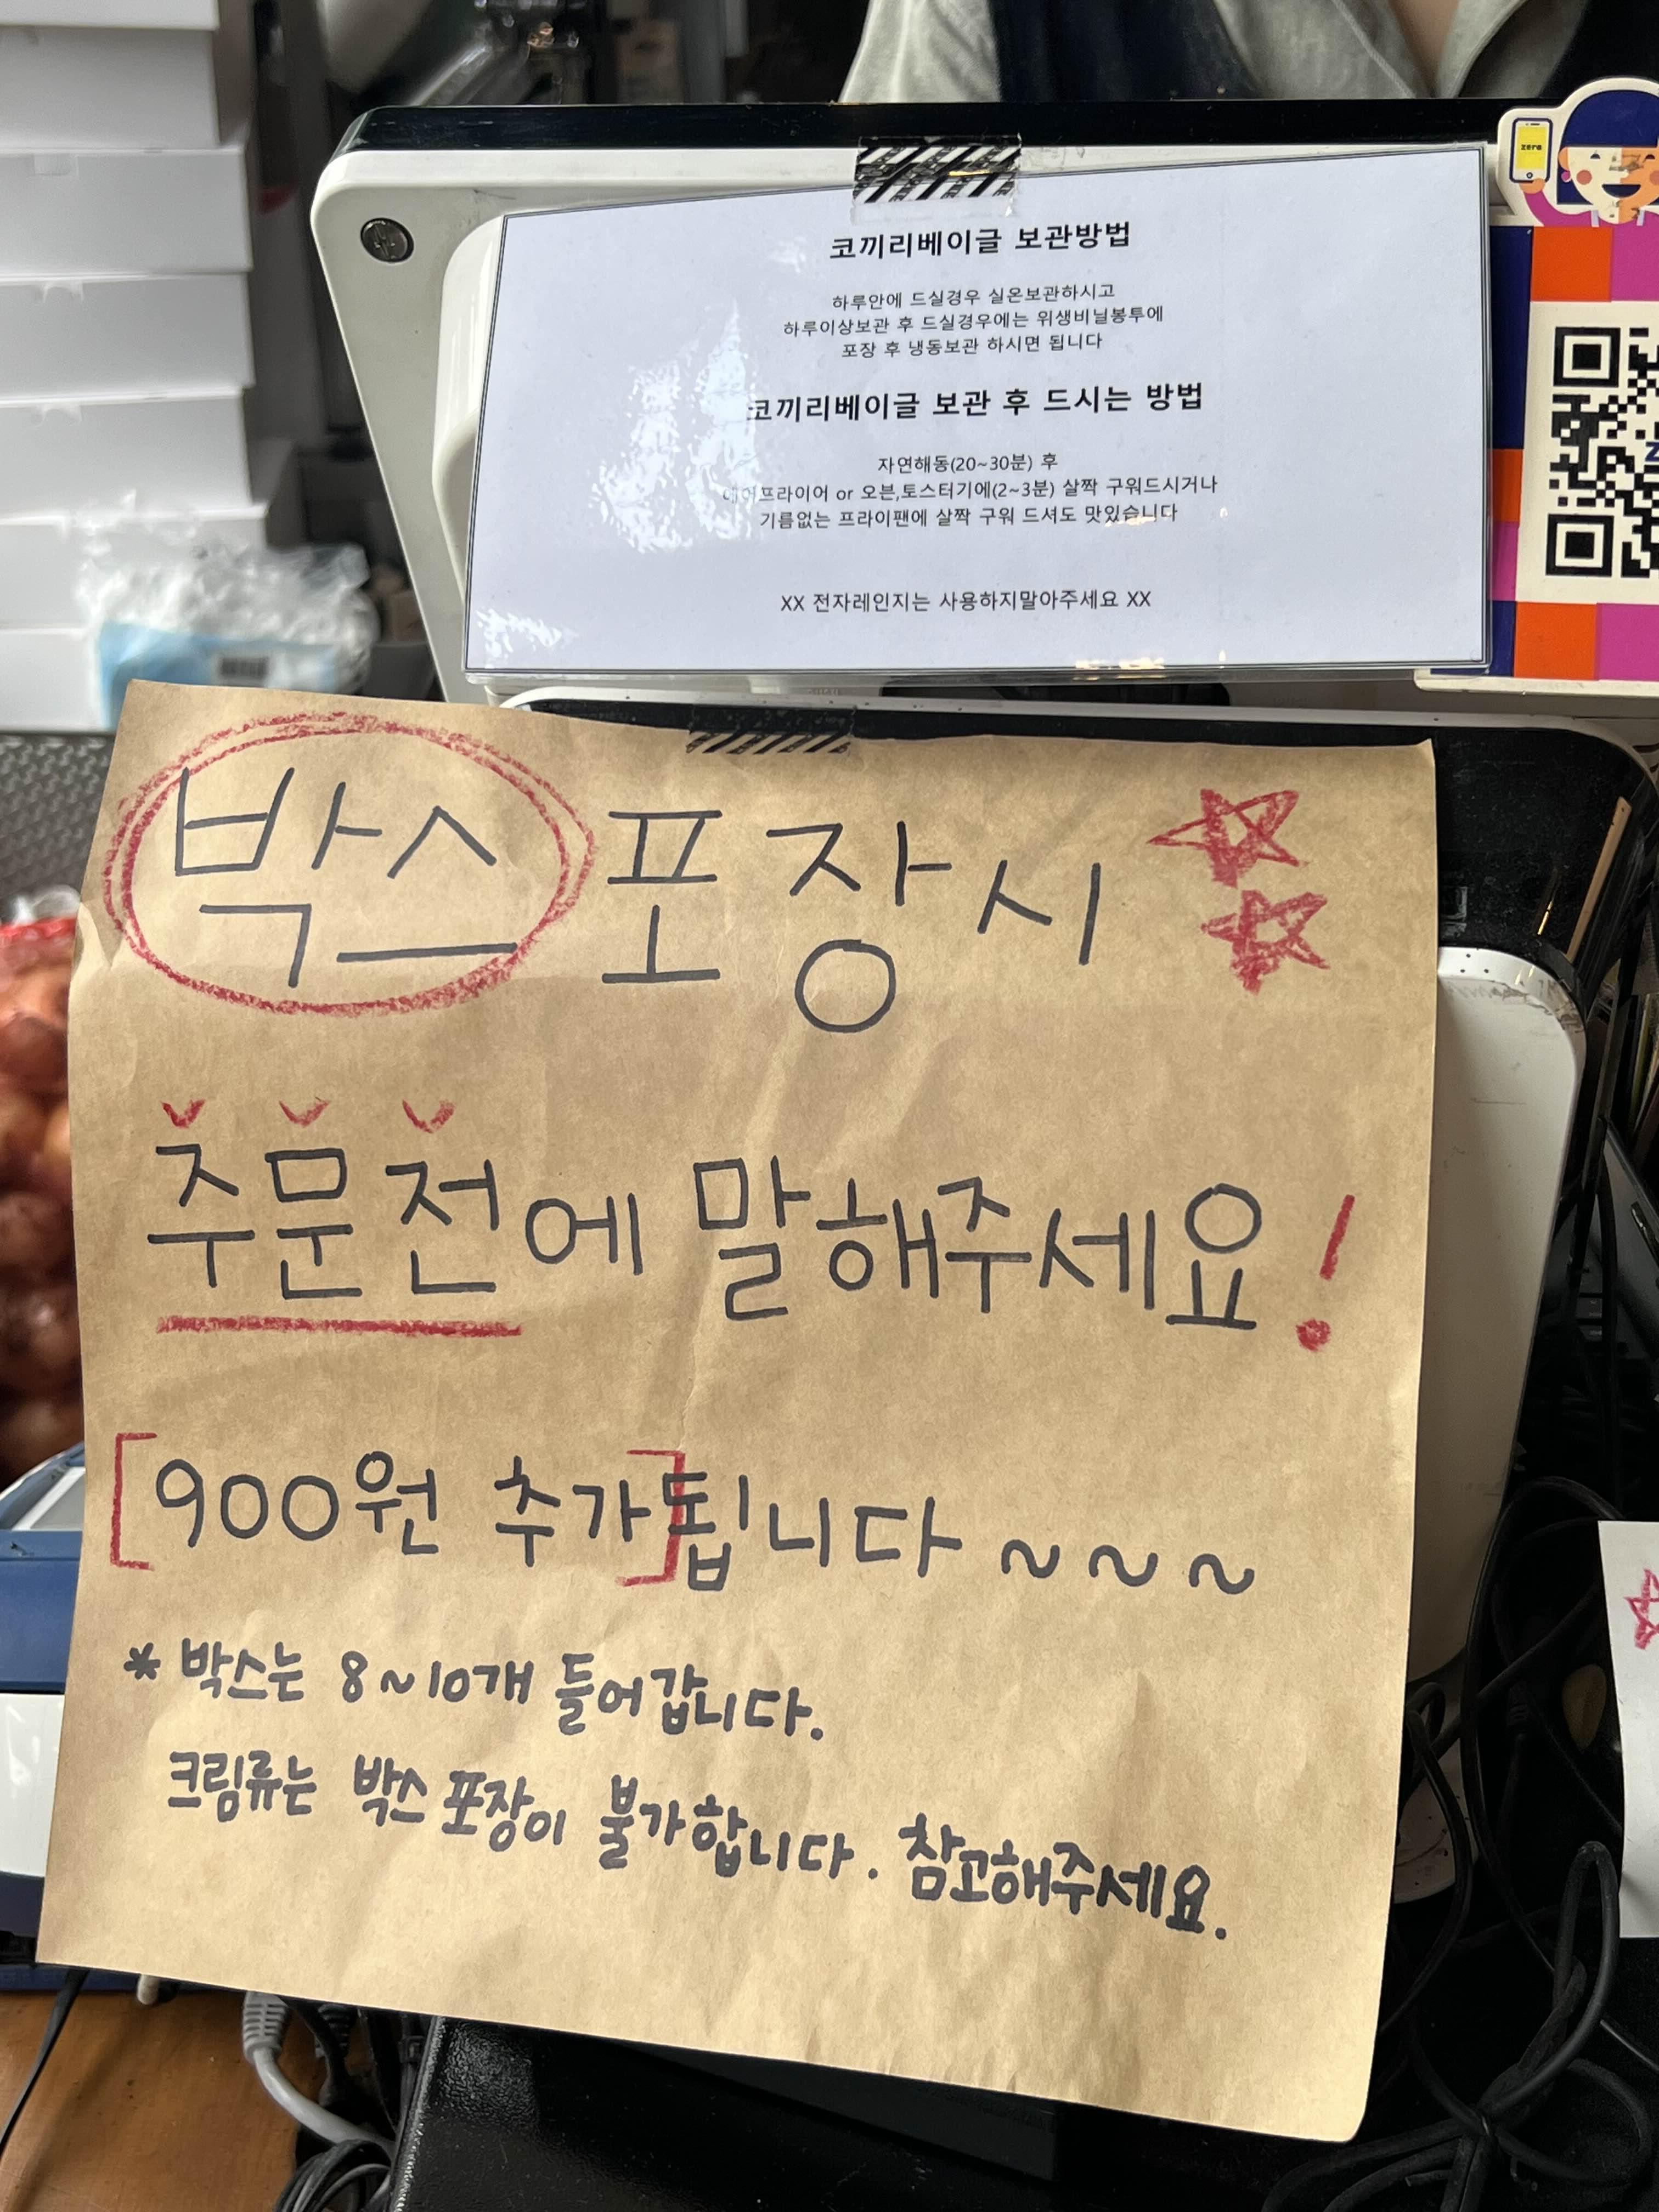 코끼리베이글 보관방법
하루안에 드실경우 실온보관하시고
하루이상보관 후 드실경우에는 위생비닐봉투에
포장 후 냉동보관 하시면 됩니다
코끼리베이글 보관 후 드시는 방법
자연해동(20~30분) 후
에어프라이어 or 오븐,토스터기에(2~3분) 살짝 구워드시거나
기름없는 프라이팬에 살짝 구워 드셔도 맛있습니다
XX 전자레인지는 사용하지말아주세요 XX
zero
박스 포장시
주문전에 말해주세요!
[900원 추가]됩니다~~~
* 박스는 8~10개 들어갑니다.
크림류는 박스 포장이 불가합니다. 참고해주세요.